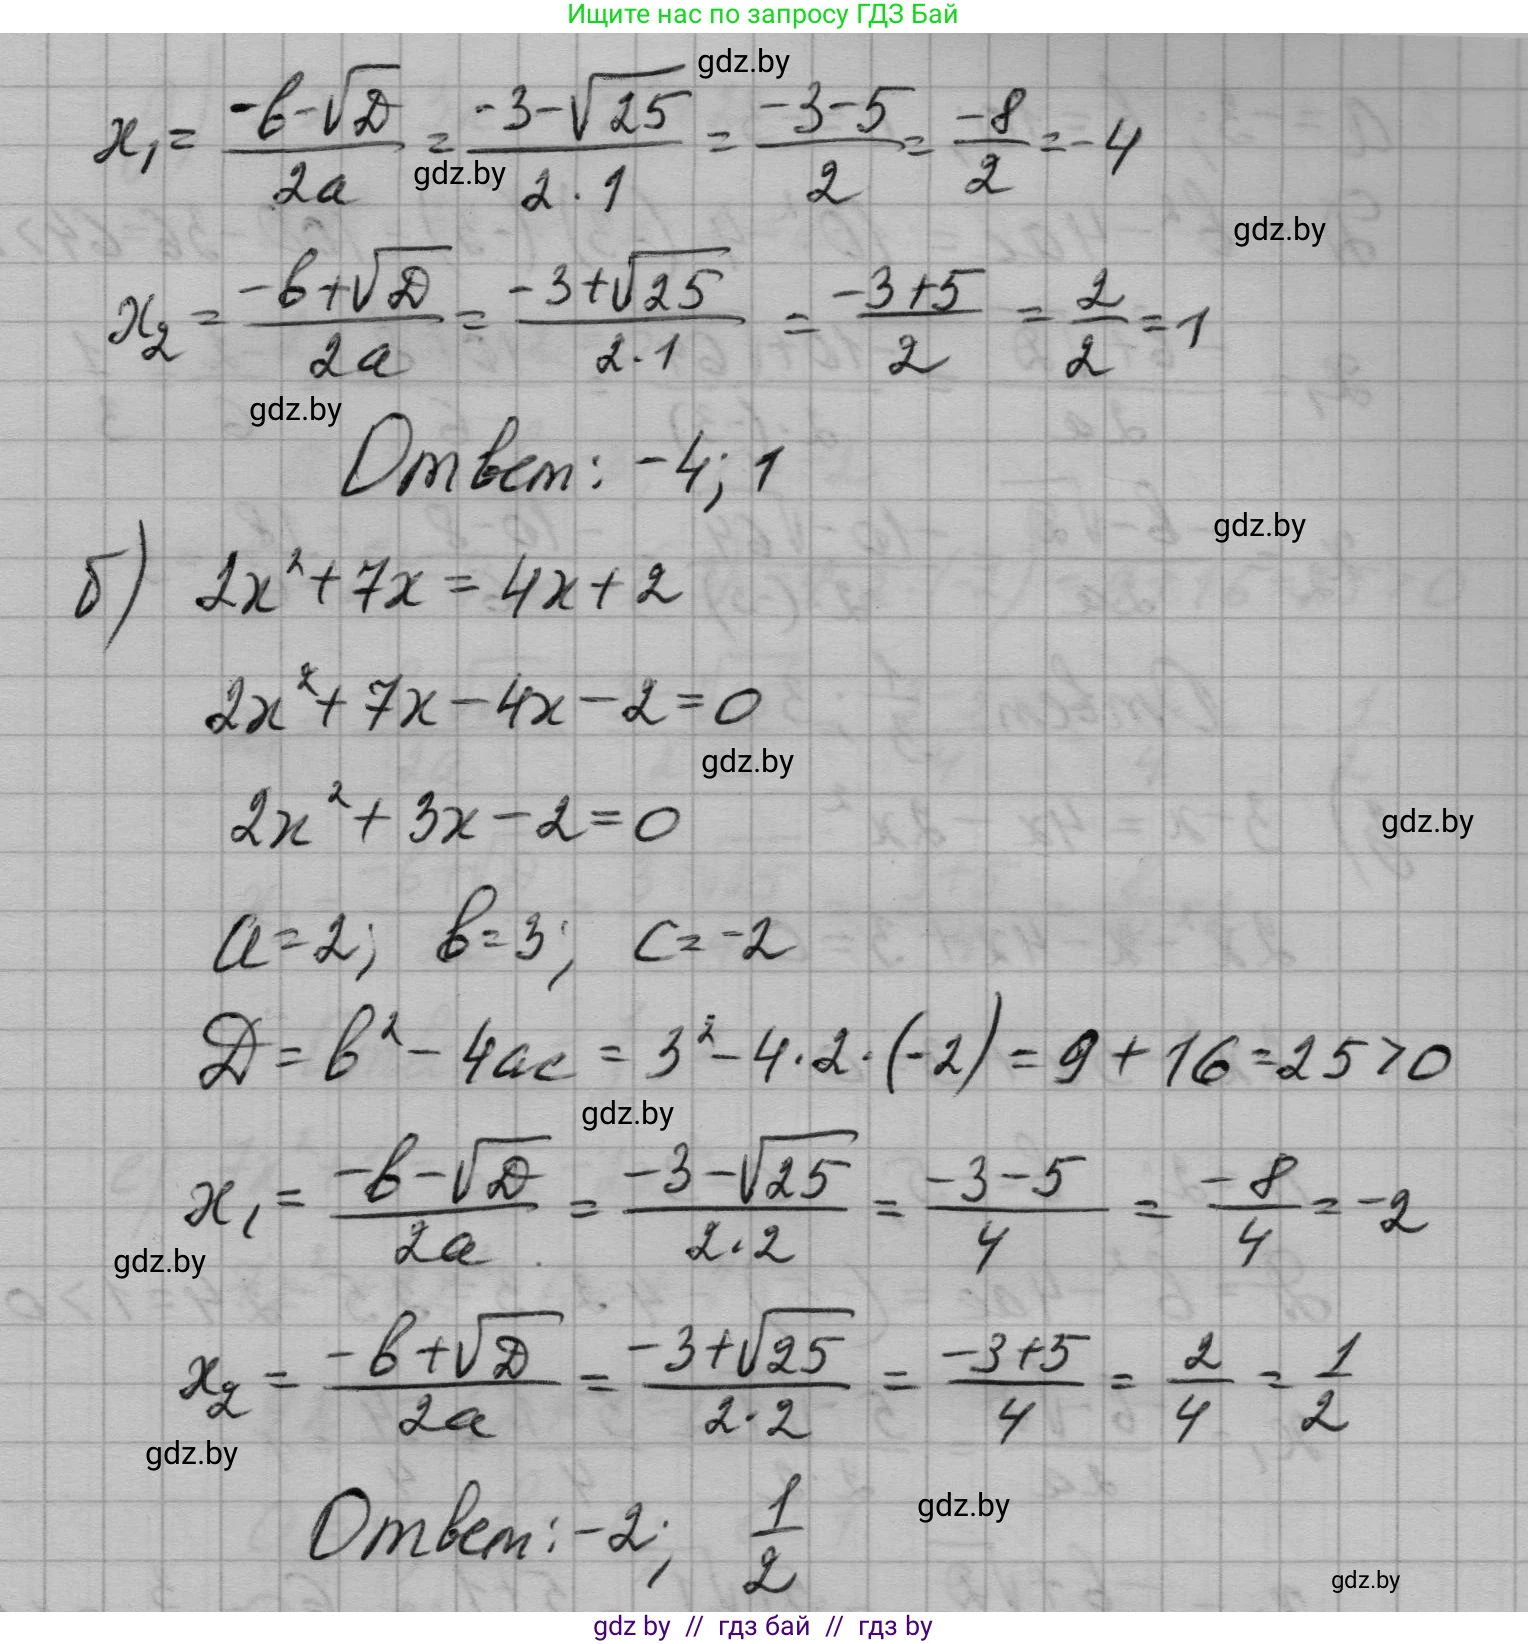 Ищите нас по запросу ГДЗ Бай
gdz.by
x₁ = (-b-√D)/(2a) = (-3-√25)/(2·1) = (-3-5)/2 = -8/2 = -4
gdz.by
gdz.by
x₂ = (-b+√D)/(2a) = (-3+√25)/(2·1) = (-3+5)/2 = 2/2 = 1
gdz.by
Ответ: -4; 1
gdz.by
б) 2x²+7x=4x+2
2x²+7x-4x-2=0
gdz.by
2x²+3x-2=0
gdz.by
a=2; b=3; c=-2
D=b²-4ac=3²-4·2·(-2)=9+16=25>0
gdz.by
x₁ = (-b-√D)/(2a) = (-3-√25)/(2·2) = (-3-5)/4 = -8/4 = -2
gdz.by
x₂ = (-b+√D)/(2a) = (-3+√25)/(2·2) = (-3+5)/4 = 2/4 = 1/2
gdz.by
Ответ: -2; 1/2
gdz.by
gdz.by
gdz by // гдз бай // гдз by